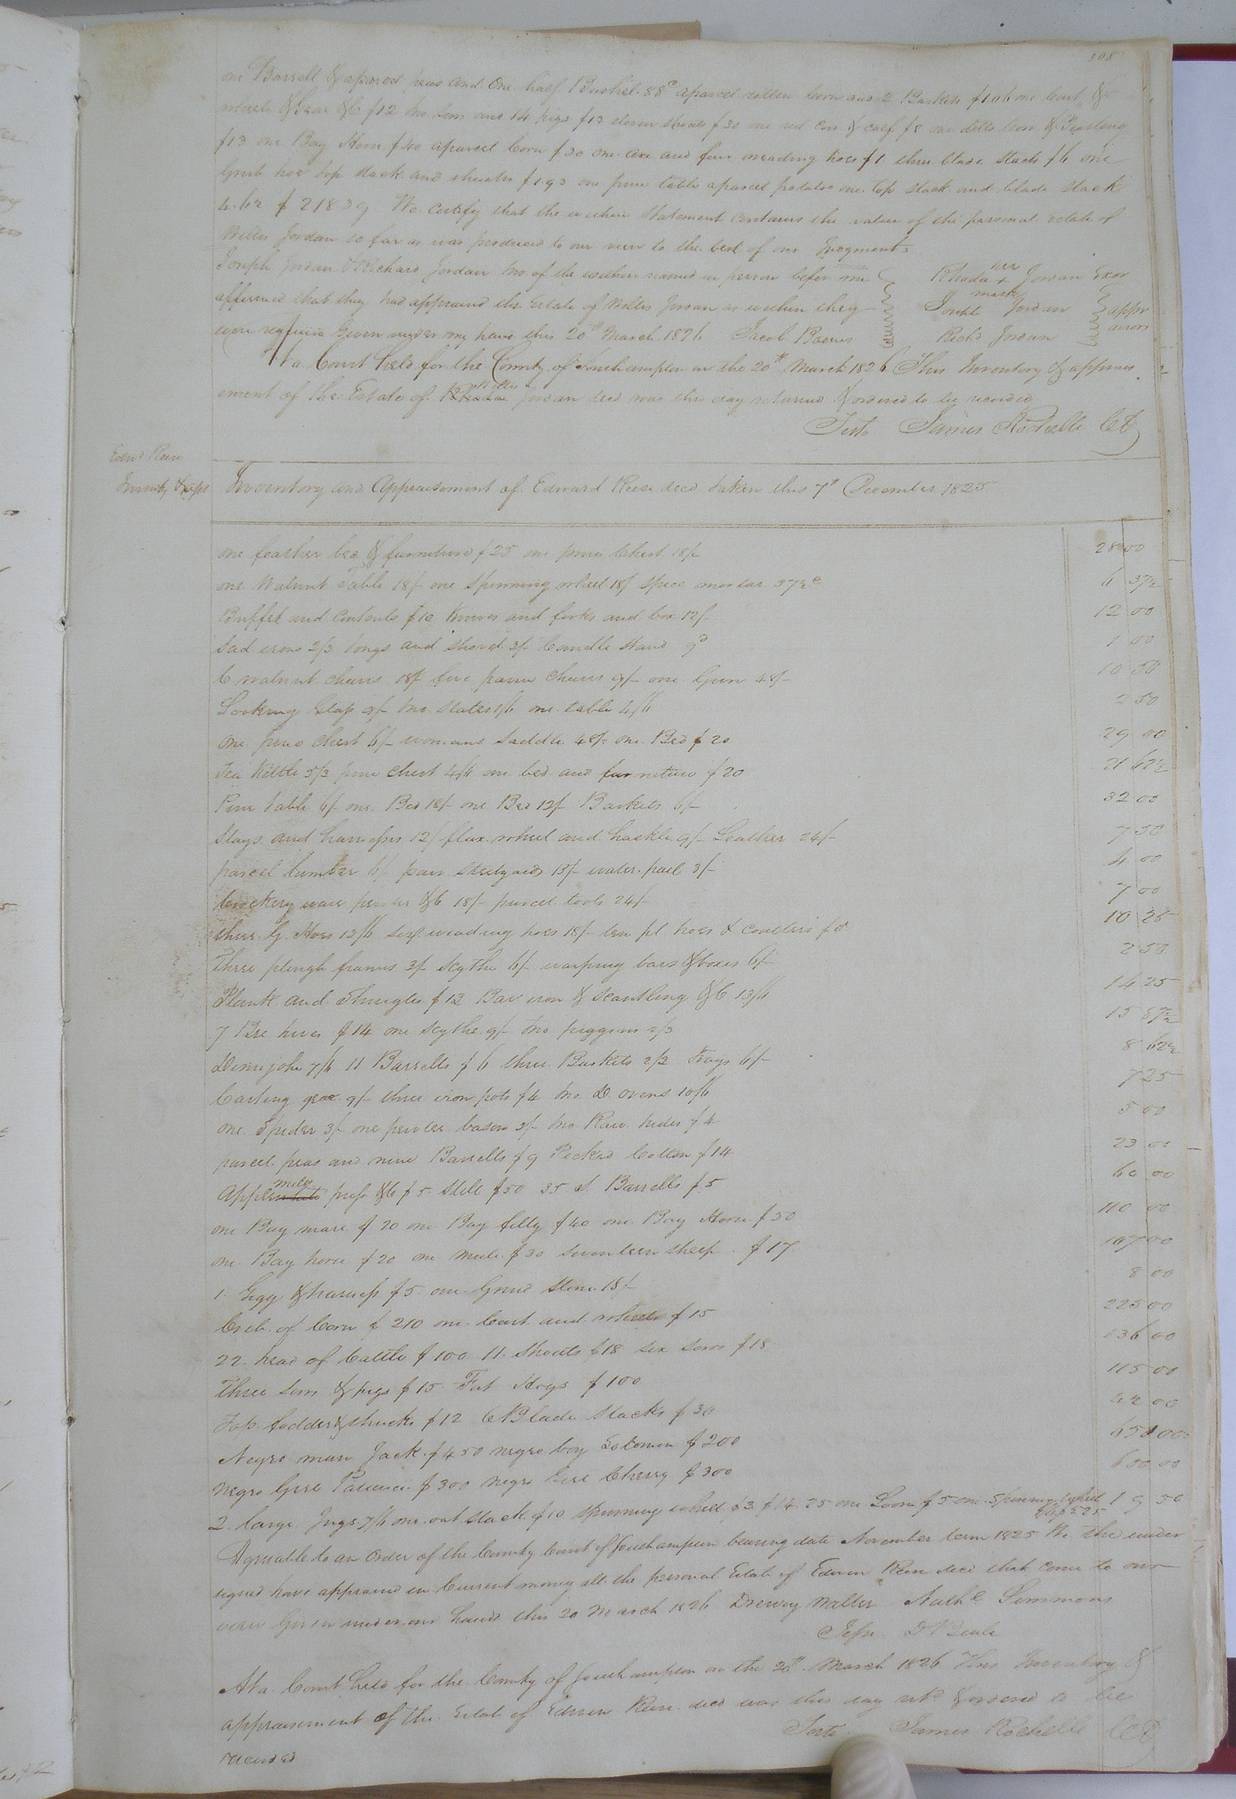 308
one Barrell & a parcel peas and One half Bushel 88c a parcel rotten corn and 2 Baskets $1 one Cart &
wheels & Gear &c $12 two Sows and 14 pigs $13 eleven shoats $30 one red Cow & calf $8 one ditto Cow & Yearling
$13 one Bay Horse $40 a parcel Corn $30 one axe and four weading hoes $1 three blade stacks $6 one
Grub hoe top stack and shucks $1.93 one pine table a parcel potatoes one Top stack and blade stack
We certify that the within Statement contains the value of the personal estate of
Willis Jordan so far as was produced to our view to the best of our Judgment
Joseph Jordan & Richard Jordan two of the within named in person before me
affirmed that they had appraised the Estate of Willis Jordan as within they
were required Given under my hand this 20th March 1826 Jacob Barnes
Rhoda her + mark Jordan Exor
Joseph Jordan
Richd Jordan
apprairsers
At a Court held for the County of Southampton on the 20th March 1826 This Inventory & appraise
ment of the Estate of Willis Jordan decd was this day returned & ordered to be recorded
Teste James Rochelle CC
Edwd Reese
Inventory & appt
Inventory and Appraisement of Edward Reese decd taken this 7th December 1825
one feather bed & furniture $25 one pine Chest 18/- 28 00
one Walnut Table 18/- one Spinning wheel 18/ Spice mortar 37½c 6 37½
Buffet and Contents $10 Knives and forks and box 12/ 12 00
Sad irons 2/3 tongs and shovel 3/ Candle Stand 9d 1 00
6 walnut chairs 18/ five pann chairs 9/- one Gun 48/- 10 50
Looking Glass 9/- two slates 1/6 one table 4/6 2 50
One pine chest 6/- womans saddle 48/- one Bed $20 29 00
Tea Kettle 5/3 pine chest 4/6 one bed and furniture $20 21 62½
Pine table 6/ one Bed 18/- one Bed 12/- Baskets 6/- 32 00
Slays and harnesses 12/ flax wheel and hackle 9/- Leather 24/- 7 50
parcel lumber 6/- pair Steelyards 15/- water pail 3/- 4 00
Crockery ware pewter &c 18/- parcel tools 24/- 7 00
three G. Hoes 12/6 six weading hoes 18/- ten pl hoes & coulters 10 25
Three plough frames 3/ Scythe 6/- warping bars & boxes 6/- 2 50
Plank and Shingles $12 Bar iron & Scantling &c 13/6 14 25
7 Bee hives $14 one scythe 9/- two piggins 2/3 15 87½
Demijohn 7/6 11 Barrells $6 three Baskets 2/3 Trays 6/- 8 62½
Carting gear 9/- three iron pots $4 two D. ovens 10/6 7 25
one Spider 3/- one pewter bason 3/- two Raw hides $4 5 00
parcel peas and nine Barrells $9 Picked Cotton $14 23 00
Apple mill press &c $5 Still $50 35 S. Barrells $5 60 00
one Bay mare $20 one Bay filly $40 one Bay Horse $50 110 00
one Bay horse $20 one mule $30 Seventeen sheep $17
1 Gigg & harness $5 one Grind Stone 18/- 8 00
Crib of Corn $210 one Cart and wheels $15 225 00
22 head of Cattle $100 11 Shoats $18 six Sows $18 136 00
Three Sows & pigs $15 Fat Hogs $100 115 00
Top fodder & shucks $12 6 Blade Stacks $30 42 00
Negro man Jack $450 negro boy Solomon $200 650 00
negro Girl Patience $300 negro Girl Cherry $300 600.00
2 large Jugs 7/6 one oat stack $10 Spinning wheel $3 $14.25 one Loom $5 one Spinning wheel 19 50
Agreeable to an order of the County Court of Southampton bearing date November term 1825 We the under
signed have appraised in Current money all the personal Estate of Edwin Reese decd that come to our
view Given under our hands this 20 March 1826 Drewry Waller Nathl Simmons
Jesse D. Beale
At a Court held for the County of Southampton on the 20th March 1826 This Inventory &
appraisement of the Estate of Edwin Reese decd was this day retd & ordered to be
recorded
Teste James Rochelle CC